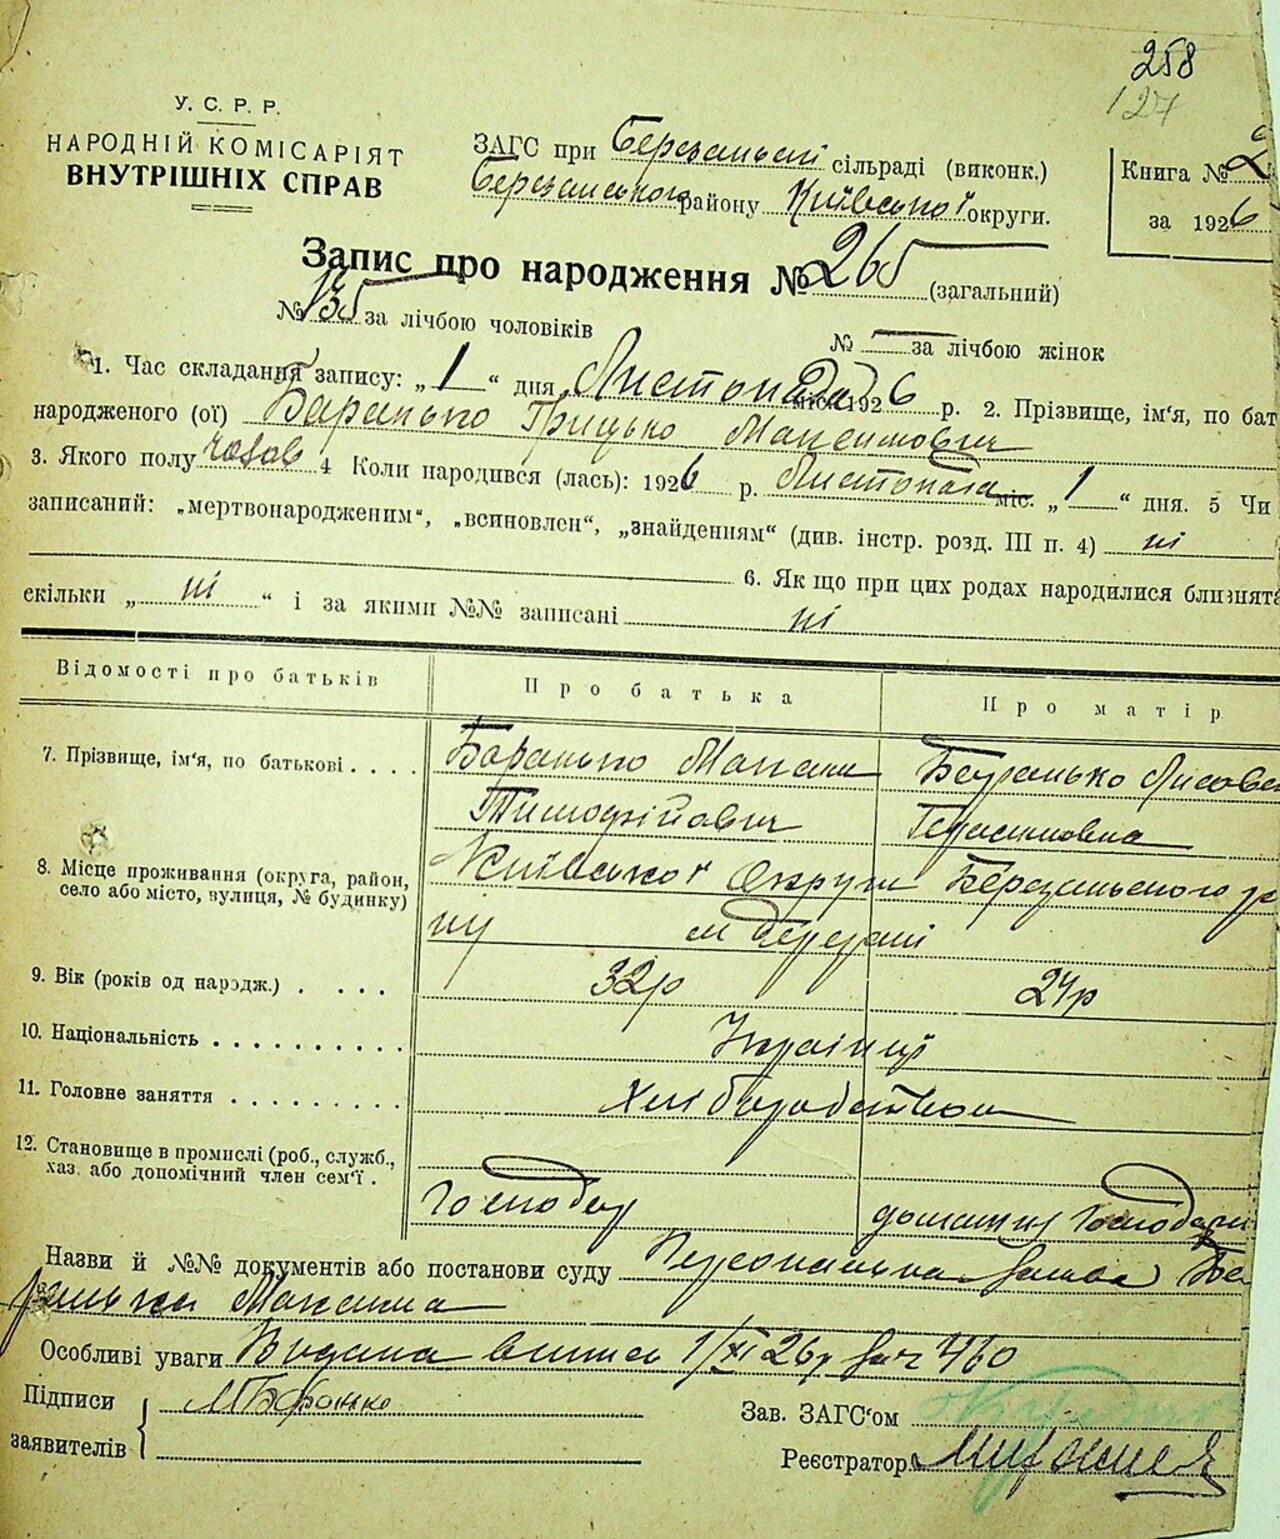 258
127
У. С. Р. Р.
НАРОДНІЙ КОМІСАРІЯТ
ВНУТРІШНІХ СПРАВ
ЗАГС при Березанській сільраді (виконк.)
Березанського району Київської округи.
Книга № 2
за 1926
Запис про народження № 265 (загальний)
№ 135 за лічбою чоловіків
№ — за лічбою жінок
1. Час складання запису: „ 1 “ дня Листопада міс. 1926 р. 2. Прізвище, ім'я, по бат
народженого (ої) Баранько Грицько Максимович
3. Якого полу чолов 4 Коли народився (лась): 1926 р. Листопада міс. „ 1 “ дня. 5 Чи
записаний: „мертвонародженим“, „всиновлен“, „знайденям“ (див. інстр. розд. III п. 4) ні
6. Як що при цих родах народилися близнята
скільки „ ні “ і за якими №№ записані ні
Відомості про батьків
Про батька
Про матір
7. Прізвище, ім'я, по батькові . . . .
Баранько Максим
Тимофійович
Баранько Лисове
Герасимовна
8. Місце проживання (округа, район,
село або місто, вулиця, № будинку)
Київської Округи Березанського ра
ну м Березані
9. Вік (років од народж.) . . . .
32р
24р
10. Національність . . . . . . . . . .
Українці
11. Головне заняття . . . . . . . . .
Хліборобством
12. Становище в промислі (роб., служб.,
хаз. або допомічний член сем'ї .
Господар
домашня Господарк
Назви й №№ документів або постанови суду Персональна заява Ба
ранька Максима
Особливі уваги Видана випись 1/XI 26р за № 460
Підписи
заявителів
М Баранько
Зав. ЗАГС'ом
Реєстратор